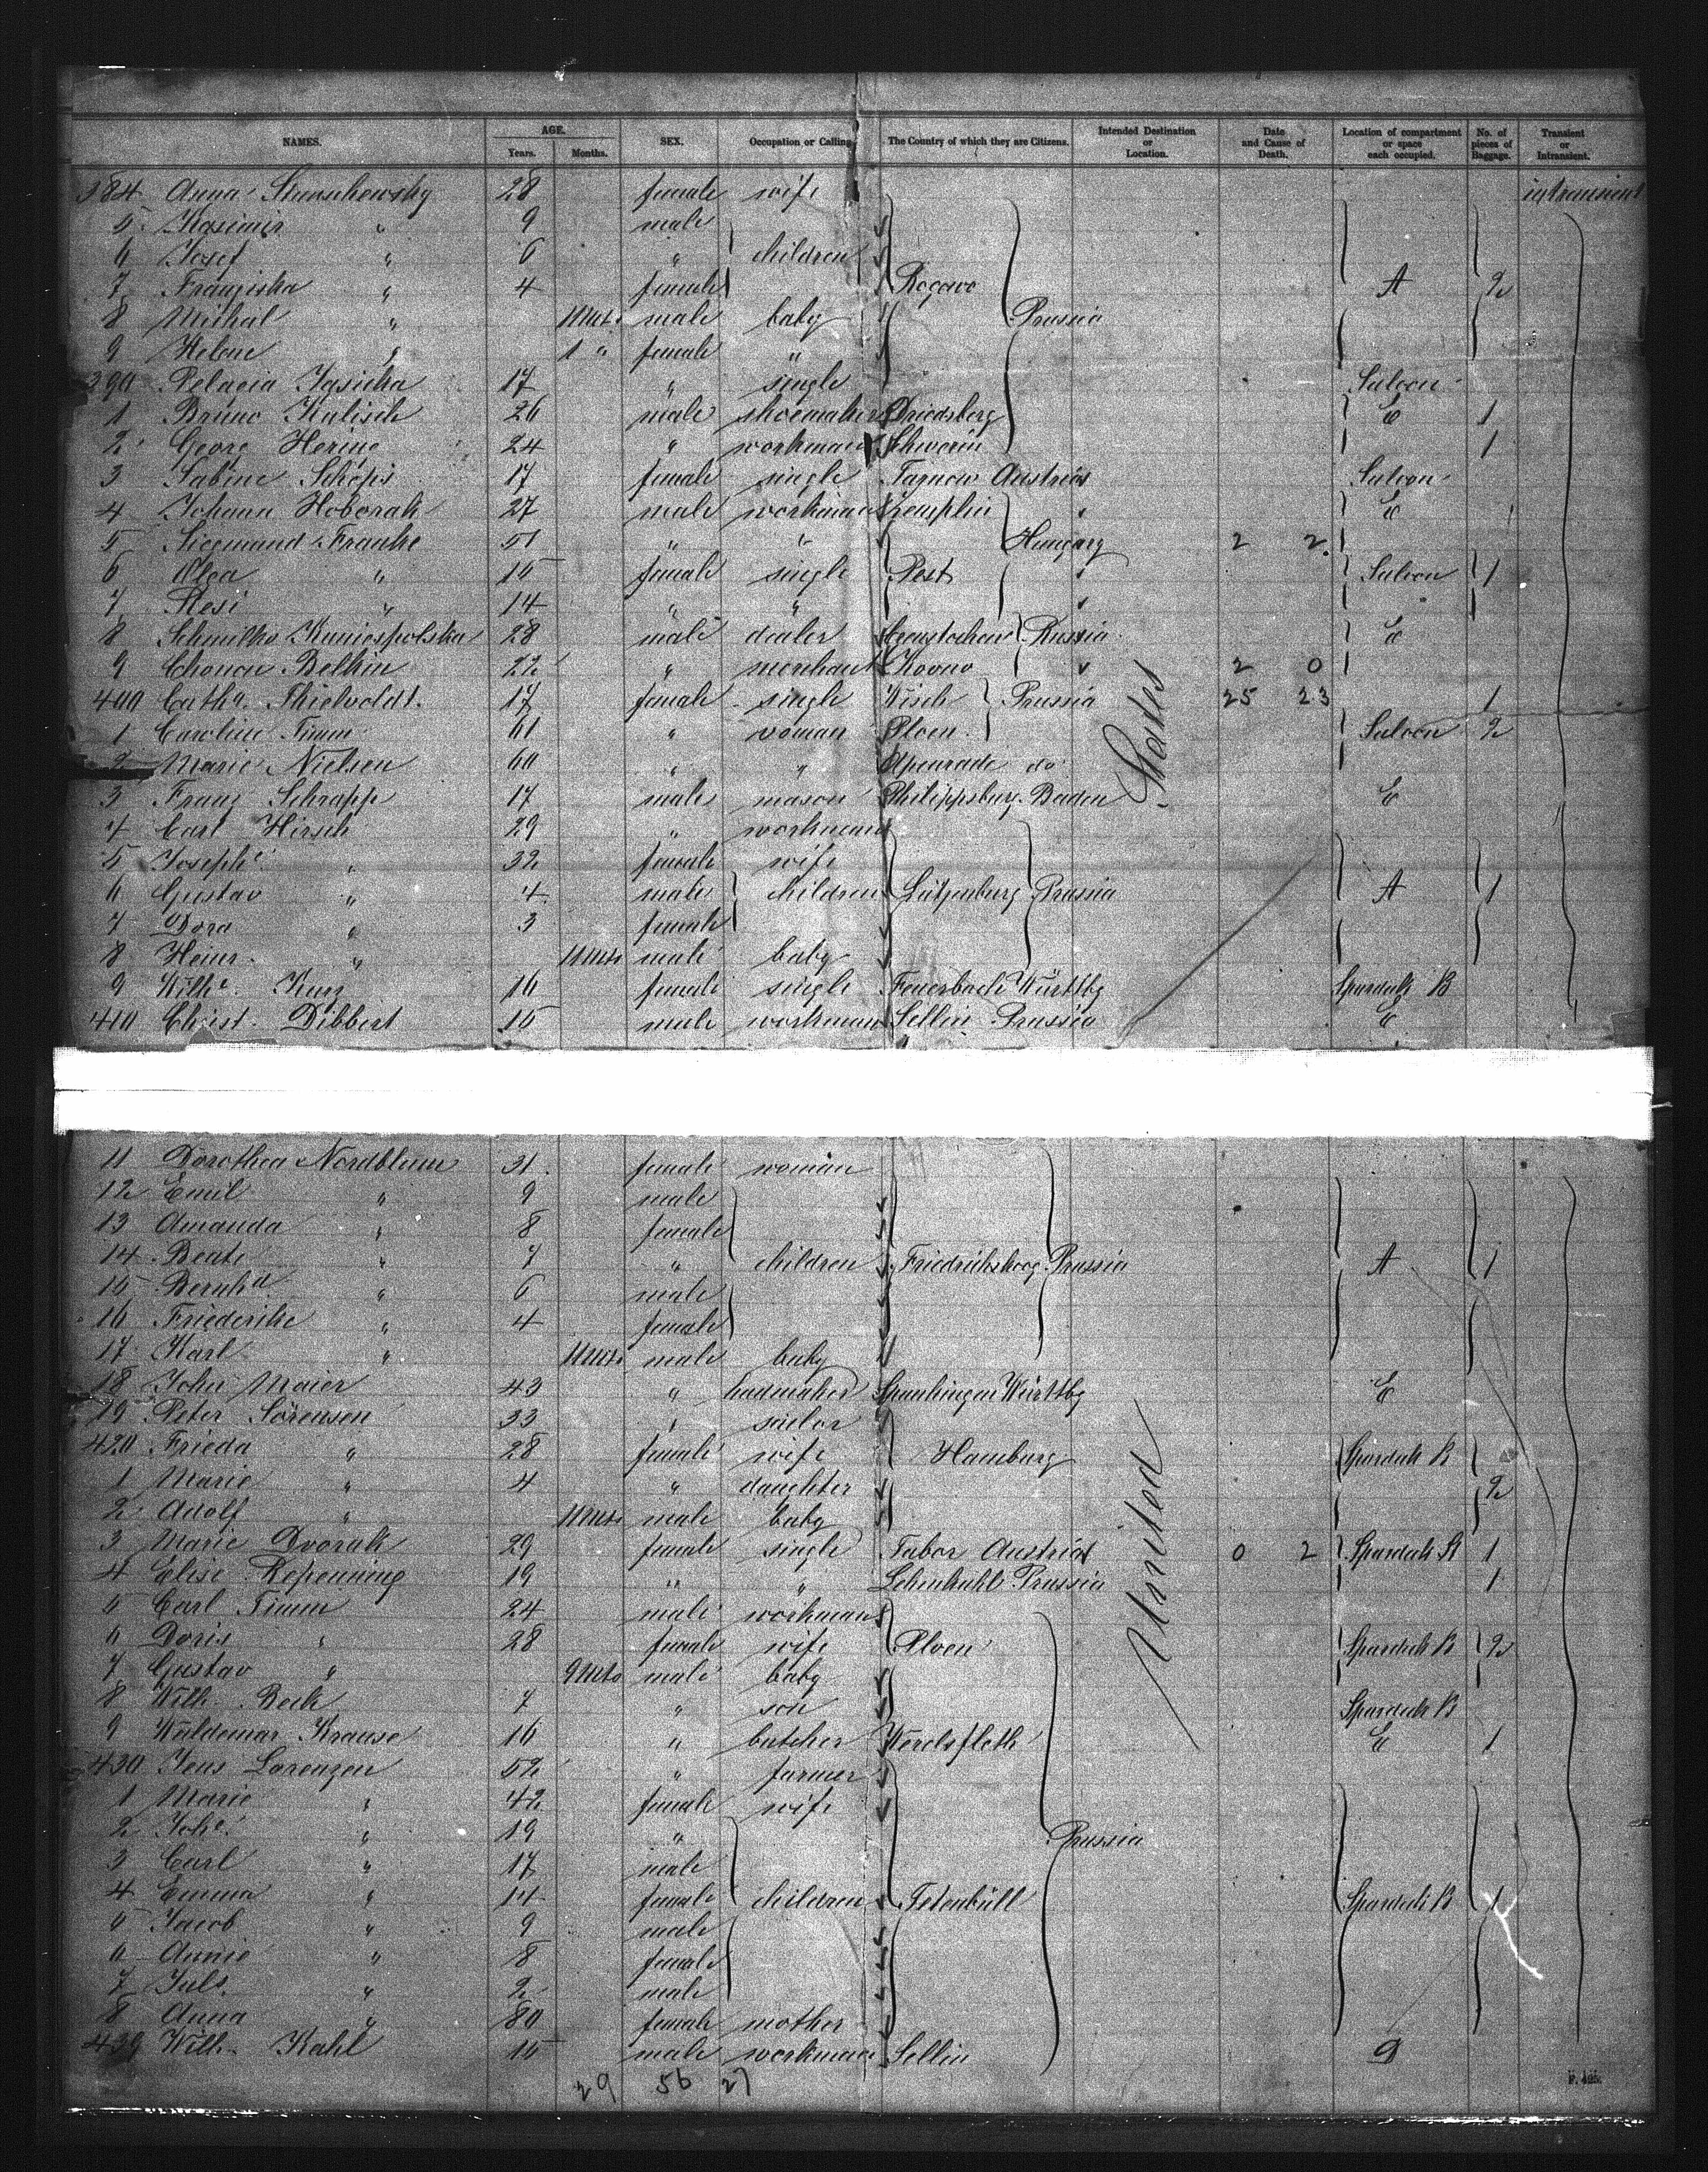 NAMES. AGE. Years. Months. SEX. Occupation or Calling. The Country of which they are Citizens. Intended Destination or Location. Date and Cause of Death. Location of compartment or space each occupied. No. of pieces of Baggage. Transient or Intransient.
384 Anna 28 female wife intransient
5 Kasimir " 9 male
6 Josef " 6 " children
7 Franziska " 4 female Rogowo A 2
8 Michal " 11 Mts. male baby Prussia
9 Helene " 1 " female "
390 Pelagia Jasicka 17 " single Saloon
1 Bruno Kalisch 26 male shoemaker Friedeberg E 1
2 Georg Hering 24 " workman Schwerin 1
3 Sabine Schöps 17 female single Tarnow Austria Saloon
4 Johann Hoborak 27 male workman Zemplin E
5 Siegmund Franke 51 " " Hungary 2 2
6 Olga " 15 female single Pest Saloon 1
7 Rosi " 14 " "
8 Schmilko Koniespolska 28 male dealer Czenstochow Russia E
9 Chonon Belkin 22 " merchant Kovno 2 0
400 Catha. Thielvoldt. 17 female single Wisch Prussia 25 23 1
1 Caroline Timm 61 " woman Ploen Saloon 2
2 Marie Nielsen 60 " " Apenrade do
3 Franz Schrapp 17 male mason Philippsburg Baden E
4 Carl Hirsch 29 " workman
5 Josephe " 32 female wife
6 Gustav " 4 male children Lütjenburg Prussia A 1
7 Dora " 3 female
8 Heinr. " 11 Mts male baby
9 Wilhe. Kurz 16 female single Feuerbach Württbg Spardeck B
410 Christ. Dibbert 15 male workman Sellin Prussia E
States
11 Dorothea Nordblum 31 female woman
12 Emil " 9 male
13 Amanda " 8 female
14 Beate " 7 " children Friedrichskoog Prussia A 1
15 Bernhd. " 6 male
16 Friederike " 4 female
17 Karl " 11 Mts. male baby
18 John Maier 43 " Spaichingen Württbg E
19 Peter Sörensen 33 " sailor
420 Frieda " 28 female wife Hamburg Spardeck B
1 Marie " 4 " daughter 2
2 Adolf " 11 Mts. male baby
3 Marie Dvorak 29 female single Tabor Austria 0 2 Spardeck B 1
4 Elise Repenning 19 " " Lehmkuhl Prussia 1
5 Carl Timm 24 male workman
6 Doris " 28 female wife Ploen Spardeck B 2
7 Gustav " 9 Mts male baby
8 Wilh. Beck 7 " son Spardeck B
9 Waldemar Krause 16 " butcher Wevelsfleth E 1
430 Jens Lorenzen 52 " farmer
1 Marie " 42 female wife
2 Johe. " 19 " Prussia
3 Carl " 17 male
4 Emma " 14 female children Tetenbüll Spardeck B 1
5 Jacob " 9 male
6 Annie " 8 female
7 Juls. " 2 male
8 Anna " 80 female mother
439 Wilh. Kahl 15 male workman Sellin
United
29 56 27